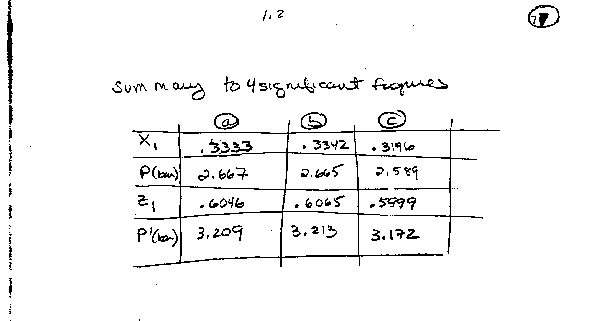 1.2
Summary to 4 significant figures
a b c
X₁ .3333 .3342 .3196
P(bar) 2.667 2.665 2.589
Z₁ .6046 .6065 .5999
P'(bar) 3.209 3.213 3.172